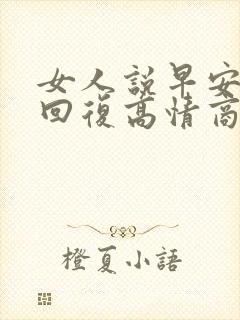 女人說早安
回復高情商
橙夏小語